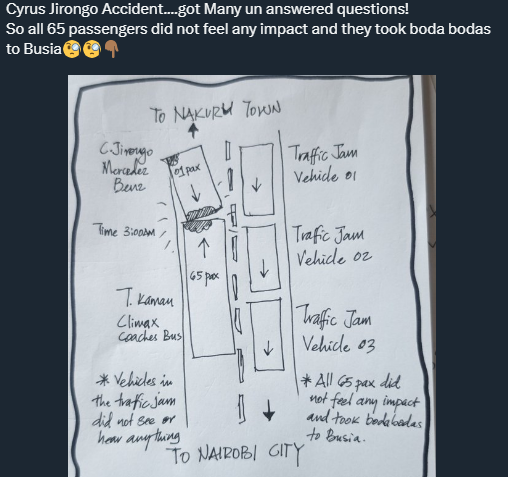 Cyrus Jirongo Accident....got Many un answered questions!
So all 65 passengers did not feel any impact and they took boda bodas
to Busia🧐🧐👇🏾
TO NAKURU TOWN
C.Jirongo
Mercedez
Benz
01 pax
Traffic Jam
Vehicle 01
Time 3:00AM
65 pax
Traffic Jam
Vehicle 02
T. Kamau
Climax
Coaches Bus
Traffic Jam
Vehicle 03
* Vehicles in
the traffic jam
did not see or
hear anything
* All 65 pax did
not feel any impact
and took bodabodas
to Busia.
TO NAIROBI CITY